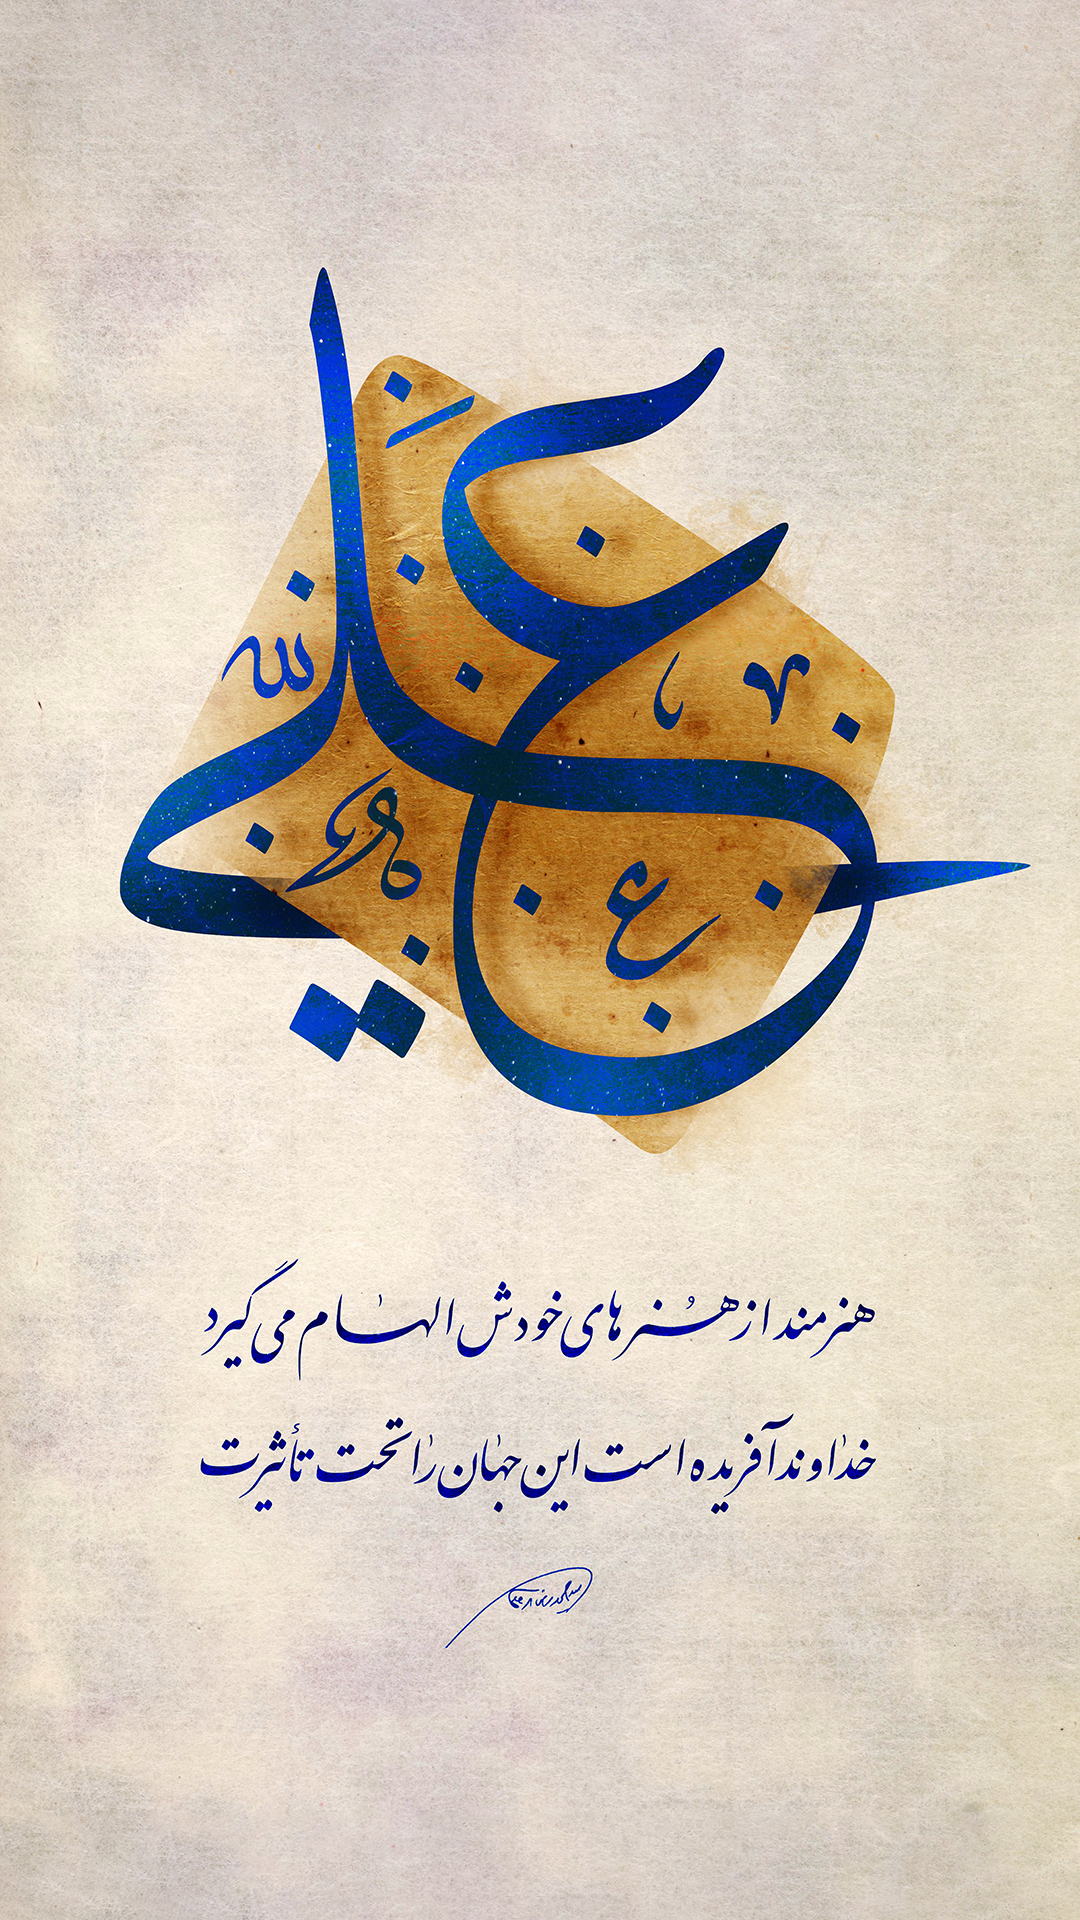 علي
هنرمند از هنرهای خودش الهام می گیرد
خداوند آفریده است این جهان را تحت تأثیرت